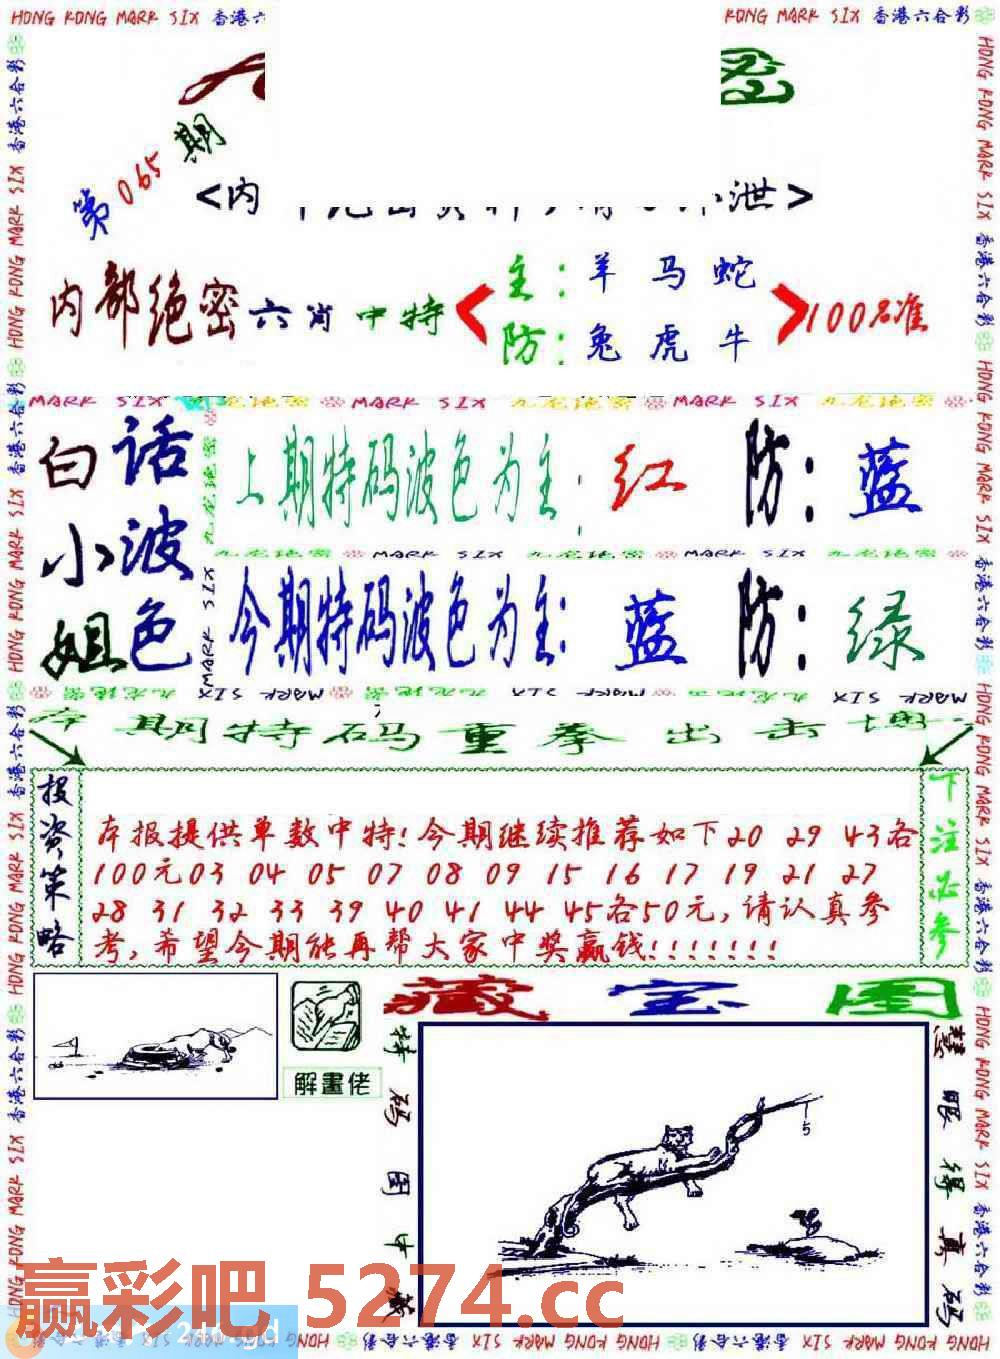 HONG KONG MARK SIX 香港六
KONG MARK SIX 香港六合彩
第065期
<内
泄>
内部绝密六肖中特
主：羊 马 蛇
防：兔 虎 牛
100%准
MARK SIX 九龙绝密 MARK SIX 九龙绝密 MARK SIX 九龙绝密
白小姐
话波色
上期特码波色为主：红 防：蓝
九龙绝密 MARK SIX 九龙绝密 MARK SIX 九龙绝密
今期特码波色为主：蓝 防：绿
本期特码重拳出击
投资策略
本报提供单数中特！今期继续推荐如下20 29 43各
100元03 04 05 07 08 09 15 16 17 19 21 27
28 31 32 33 39 40 41 44 45各50元，请认真参
考，希望今期能再帮大家中奖赢钱！！！！！！！
下注必参
解畫佬
藏宝图
特码图中藏
慧眼得真码
5
赢彩吧 5274.cc
HONG KONG MARK SIX 香港六合彩